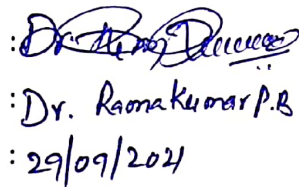 : Dr.
: Dr. Ramakumar P.B
: 29/09/2021